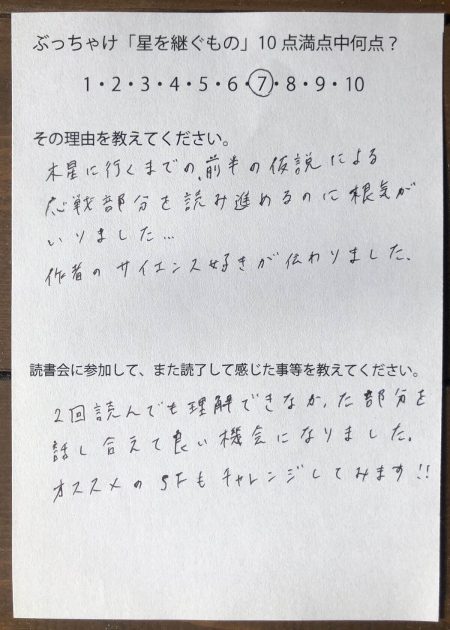 ぶっちゃけ「星を継ぐもの」10点満点中何点？
1・2・3・4・5・6・7・8・9・10
その理由を教えてください。
木星に行くまでの、前半の仮説による
応戦部分を読み進めるのに根気が
いりました…
作者のサイエンス好きが伝わりました。
読書会に参加して、また読了して感じた事等を教えてください。
2回読んでも理解できなかった部分を
話し合えて良い機会になりました。
オススメのSFもチャレンジしてみます!!